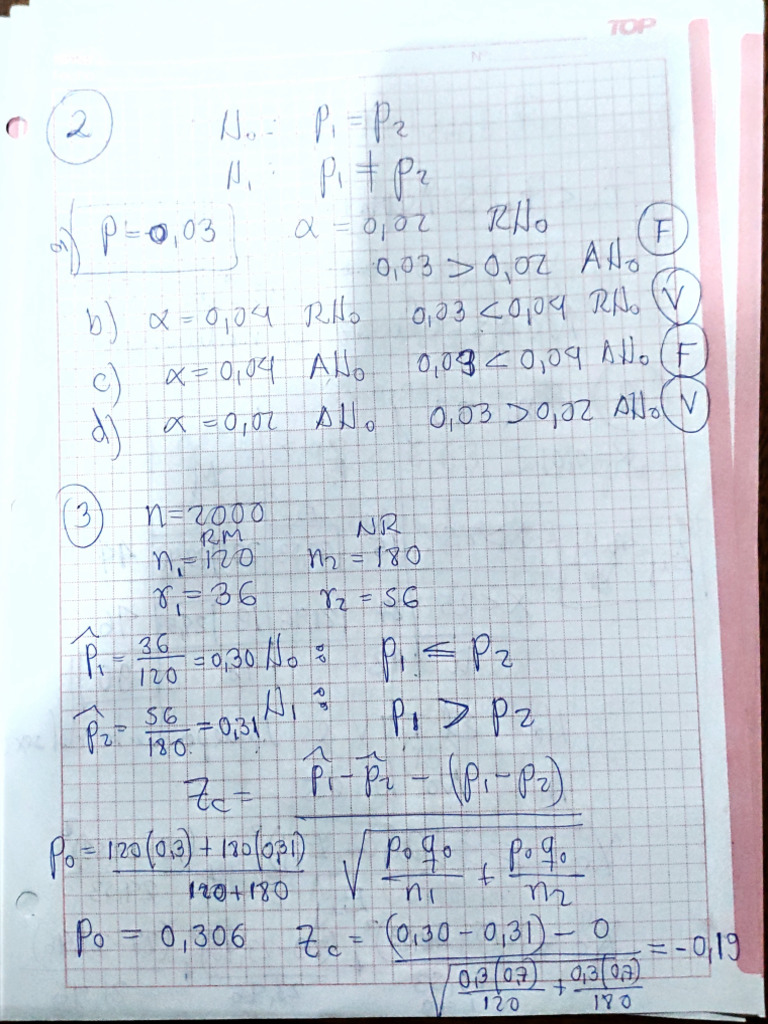 TOP
N
2
H₀: P₁ = P₂
H₁: P₁ ≠ P₂
a) P = 0,03 α = 0,02 RH₀ F
0,03 > 0,02 AH₀
b) α = 0,04 RH₀ 0,03 < 0,04 RH₀ V
c) α = 0,04 AH₀ 0,03 < 0,04 AH₀ F
d) α = 0,02 AH₀ 0,03 > 0,02 AH₀ V
3 n = 2000
RM NR
n₁ = 120 n₂ = 180
r₁ = 36 r₂ = 56
p̂₁ = 36/120 = 0,30 H₀: P₁ ≤ P₂
p̂₂ = 56/180 = 0,31 H₁: P₁ > P₂
Zc = (p̂₁ - p̂₂ - (p₁ - p₂)) / √(p₀q₀/n₁ + p₀q₀/n₂)
P₀ = (120(0,3) + 180(0,31)) / (120 + 180)
P₀ = 0,306 Zc = ((0,30 - 0,31) - 0) / √(0,3(0,7)/120 + 0,3(0,7)/180) = -0,19